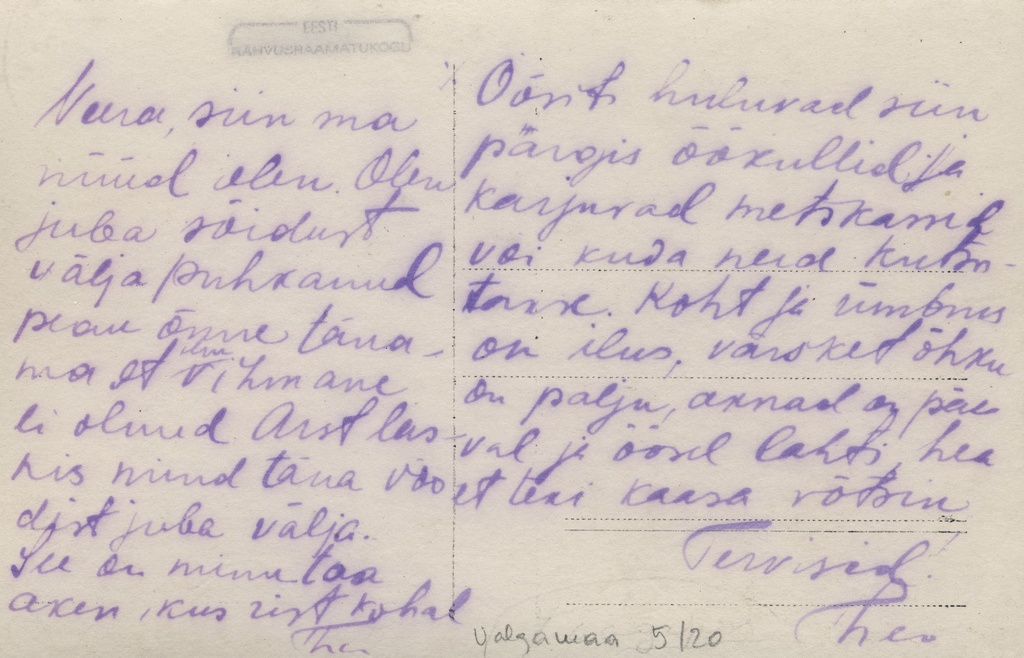 EESTI
RAHVUSRAAMATUKOGU
Veera, siin ma
nüüd olen. Olen
juba sõidust
välja puhkanud
pean õnne täna-
ma et ilm vihmane
ei olnud Arst las-
kis mind täna voo-
dist juba välja.
See on minu toa
aken, kus rist kohal
Theo
Öösiti huluvad siin
pärgis öökullid ja
karjuvad metskassid
või kuda neid kutsu-
takse. Koht ja ümbrus
on ilus, värsket õhku
on palju, aknad on päe
val ja öösel lahti, hea
et teki kaasa võtsin
Tervisid!
Theo
Valgamaa 5/20